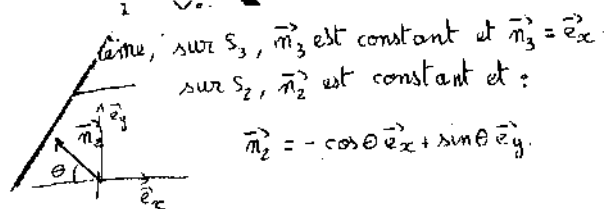 sur S₃, n⃗₃ est constant et n⃗₃ = e⃗ₓ.
sur S₂, n⃗₂ est constant et :
e⃗y
n⃗₂
n⃗₂ = - cosθ e⃗ₓ + sinθ e⃗y.
θ
e⃗ₓ